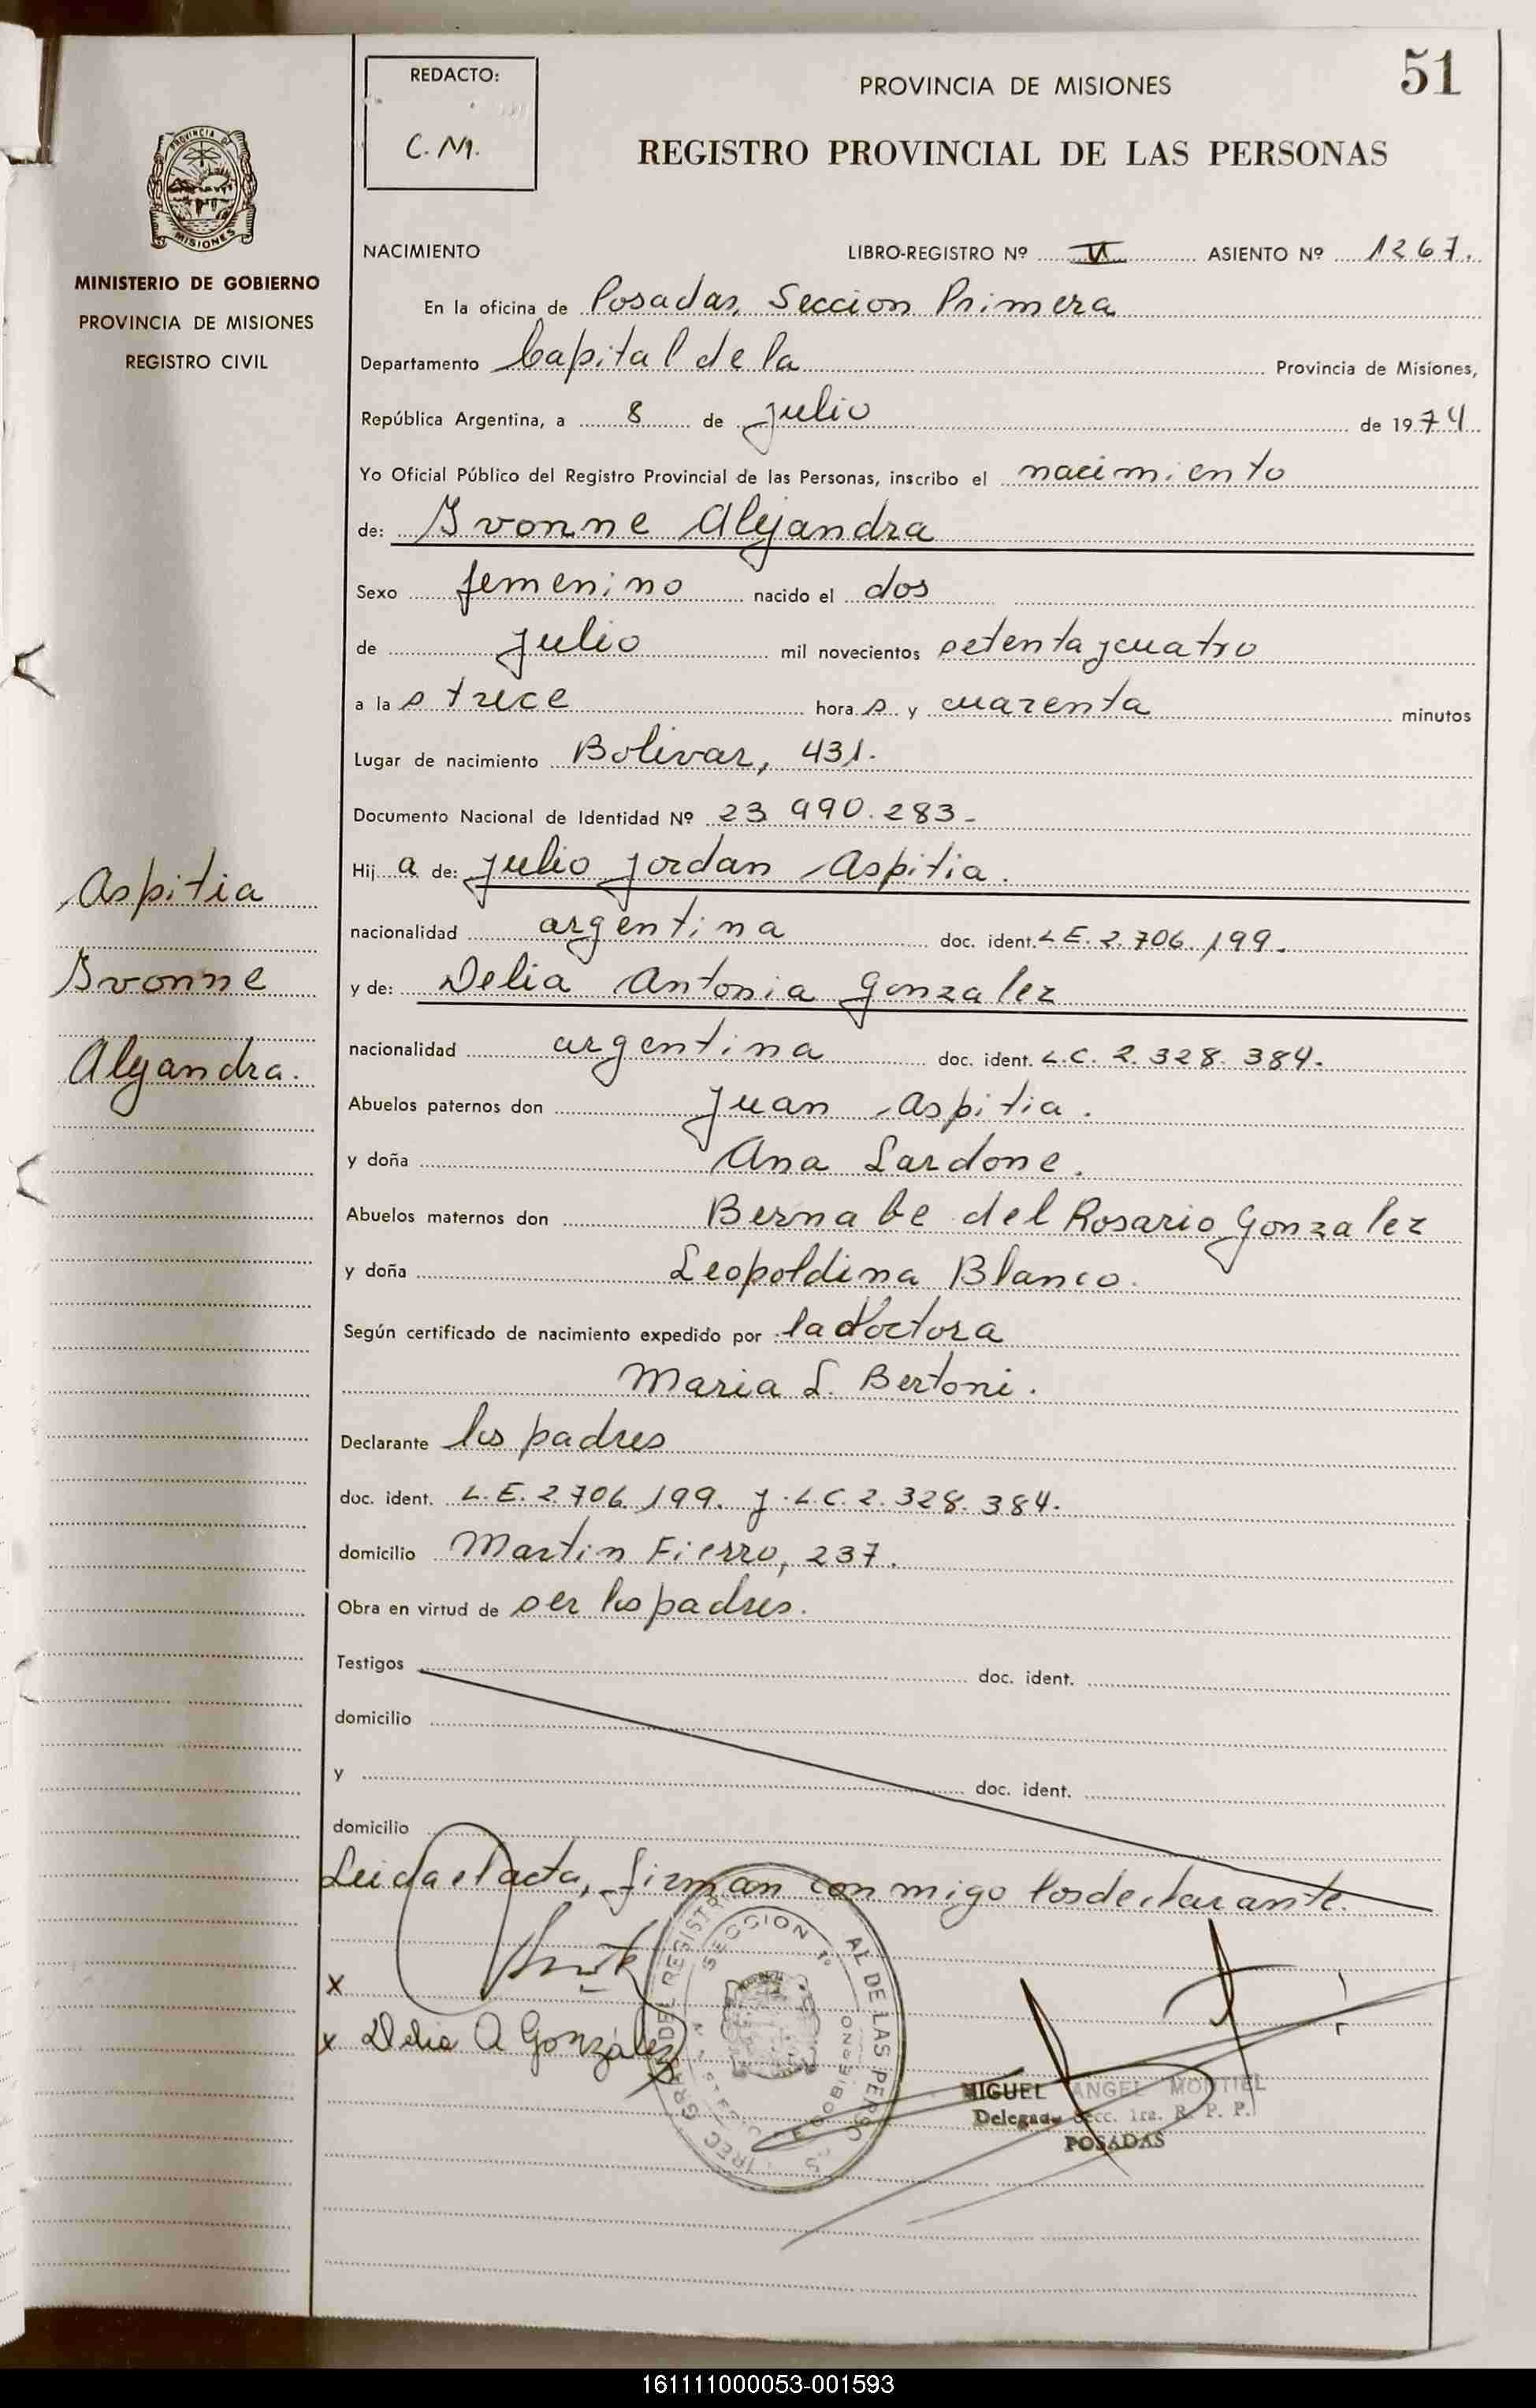 51
REDACTO:
C. M.
PROVINCIA DE MISIONES
REGISTRO PROVINCIAL DE LAS PERSONAS
PROVINCIA DE
MISIONES
MINISTERIO DE GOBIERNO
PROVINCIA DE MISIONES
REGISTRO CIVIL
NACIMIENTO LIBRO-REGISTRO Nº ASIENTO Nº 1267.
En la oficina de Posadas, Seccion Primera
Departamento Capital de la Provincia de Misiones,
República Argentina, a 8 de julio de 1974
Yo Oficial Público del Registro Provincial de las Personas, inscribo el nacimiento
de: Ivonne Alejandra
Sexo femenino nacido el dos
de julio mil novecientos setenta y cuatro
a la s trece hora s y cuarenta minutos
Lugar de nacimiento Bolivar, 431.
Documento Nacional de Identidad Nº 23 990.283-
Hij a de: Julio Jordan Aspitia.
nacionalidad argentina doc. ident. L E. 2.706.199.
y de: Delia Antonia Gonzalez
nacionalidad argentina doc. ident. L.C. 2.328.384.
Abuelos paternos don Juan Aspitia.
y doña Ana Lardone.
Abuelos maternos don Bernabe del Rosario Gonzalez
y doña Leopoldina Blanco.
Según certificado de nacimiento expedido por la doctora
Maria L. Bertoni.
Declarante los padres
doc. ident. L.E. 2.706.199. y L.C. 2.328.384.
domicilio Martin Fierro, 237.
Obra en virtud de ser los padres.
Testigos doc. ident.
domicilio
y doc. ident.
domicilio
Leida el acta, firman conmigo los declarante.
x
x Delia A González
Aspitia
Ivonne
Alejandra.
SECCION 1º
MIGUEL ANGEL MONTIEL
Delegado Secc. 1ra. R. P. P.
POSADAS
161111000053-001593